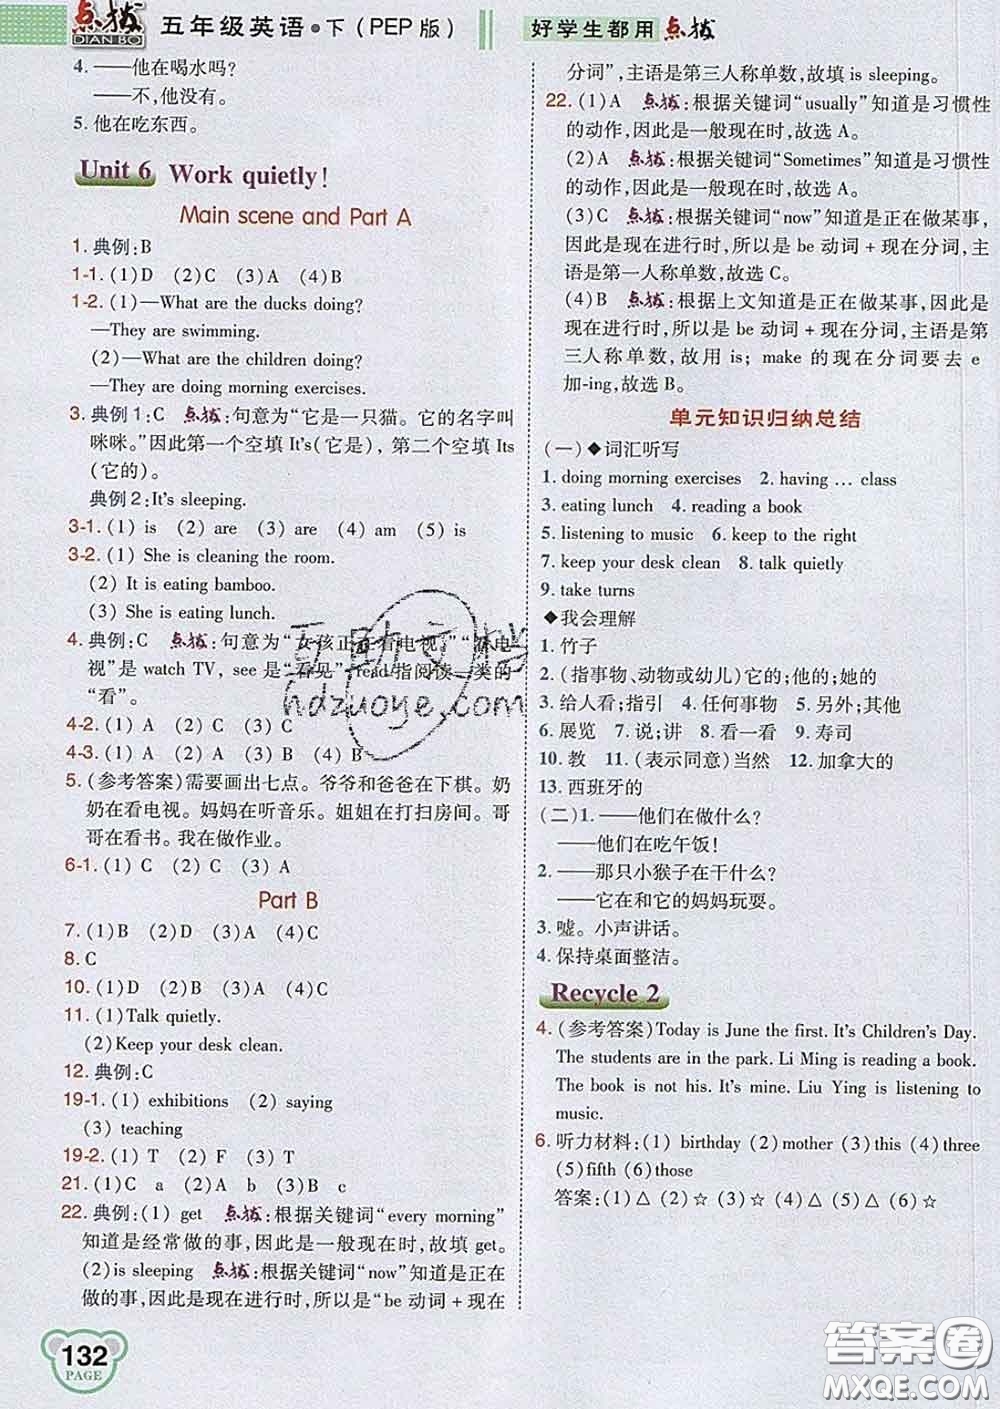 点拨 DIAN BO 五年级英语·下(PEP版)
好学生都用点拨
4. ——他在喝水吗?
——不,他没有。
5. 他在吃东西。
Unit 6 Work quietly!
Main scene and Part A
1. 典例:B
1-1. (1)D (2)C (3)A (4)B
1-2. (1)—What are the ducks doing?
—They are swimming.
(2)—What are the children doing?
—They are doing morning exercises.
3. 典例1:C 点拨:句意为“它是一只猫。它的名字叫
咪咪。”因此第一个空填It's(它是),第二个空填Its
(它的)。
典例2:It's sleeping.
3-1. (1) is (2) are (3) are (4) am (5) is
3-2. (1) She is cleaning the room.
(2) It is eating bamboo.
(3) She is eating lunch.
4. 典例:C 点拨:句意为“女孩正在看电视。”“看电
视”是 watch TV, see 是“看见”, read 指阅读一类的
“看”。
4-2. (1) A (2) A (3) C
4-3. (1) A (2) B (3) A (4) B
5. (参考答案)需要画出七点。爷爷和爸爸在下棋。奶
奶在看电视。妈妈在听音乐。姐姐在打扫房间。哥
哥在看书。我在做作业。
6-1. (1) C (2) C (3) A
Part B
7. (1)B (2)D (3)A (4)C
8. C
10. (1)D (2)B (3)A (4)C
11. (1)Talk quietly.
(2)Keep your desk clean.
12. 典例:C
19-1. (1) exhibitions (2) saying
(3) teaching
19-2. (1) T (2) F (3) T
21. (1)C a (2)A b (3)B c
22. 典例:(1) get 点拨:根据关键词“every morning”
知道是经常做的事,因此是一般现在时,故填 get。
(2)is sleeping 点拨:根据关键词“now”知道是正在
做的事,因此是现在进行时,所以是“be 动词+现在
分词”,主语是第三人称单数,故填 is sleeping。
22. (1)A 点拨:根据关键词“usually”知道是习惯性
的动作,因此是一般现在时,故选 A。
(2)A 点拨:根据关键词“Sometimes”知道是习惯性
的动作,因此是一般现在时,故选 A。
(3)C 点拨:根据关键词“now”知道是正在做某事,
因此是现在进行时,所以是 be 动词+现在分词,主
语是第一人称单数,故选 C。
(4)B 点拨:根据上文知道是正在做某事,因此是现
在进行时,所以是 be 动词+现在分词,主语是第
三人称单数,故用 is; make 的现在分词要去 e
加-ing,故选 B。
单元知识归纳总结
(一)◆词汇听写
1. doing morning exercises 2. having … class
3. eating lunch 4. reading a book
5. listening to music 6. keep to the right
7. keep your desk clean 8. talk quietly
9. take turns
◆我会理解
1. 竹子
2. (指事物、动物或幼儿)它的;他的;她的
3. 给人看;指引 4. 任何事物 5. 另外;其他
6. 展览 7. 说;讲 8. 看一看 9. 寿司
10. 教 11. (表示同意)当然 12. 加拿大的
13. 西班牙的
(二)1. ——他们在做什么?
——他们在吃午饭!
2. ——那只小猴子在干什么?
——它在和它的妈妈玩耍。
3. 嘘。小声讲话。
4. 保持桌面整洁。
Recycle 2
4. (参考答案)Today is June the first. It's Children's Day.
The students are in the park. Li Ming is reading a book.
The book is not his. It's mine. Liu Ying is listening to
music.
6. 听力材料:(1) birthday (2)mother (3)this (4)three
(5)fifth (6)those
答案:(1)△ (2)☆ (3)☆ (4)△ (5)△ (6)☆
132
PAGE
hdzuoye.com
答案圈
MXQE.COM